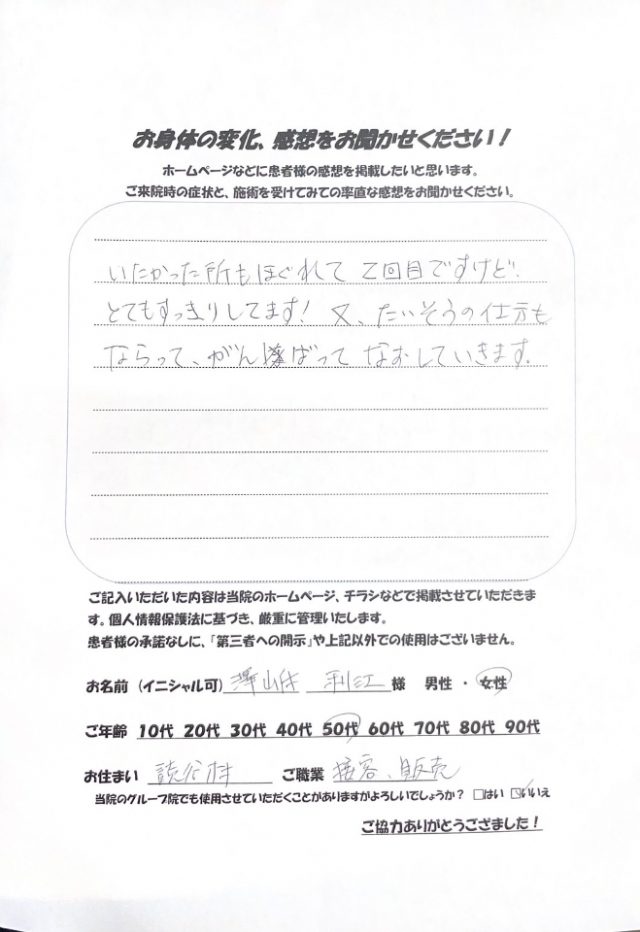 お身体の変化、感想をお聞かせください！
ホームページなどに患者様の感想を掲載したいと思います。
ご来院時の症状と、施術を受けてみての率直な感想をお聞かせください。
いたかった所もほぐれて 2回目ですけど、
とてもすっきりしてます！ 又、たいそうの仕方も
ならって、がん ばって なおしていきます。
ご記入いただいた内容は当院のホームページ、チラシなどで掲載させていただきま
す。個人情報保護法に基づき、厳重に管理いたします。
患者様の承諾なしに、「第三者への開示」や上記以外での使用はございません。
お名前（イニシャル可） 利江 様 男性 ・ 女性
ご年齢 10代 20代 30代 40代 50代 60代 70代 80代 90代
お住まい 読谷村 ご職業 接客、販売
当院のグループ院でも使用させていただくことがありますがよろしいでしょうか？ □はい □いいえ
ご協力ありがとうござました！